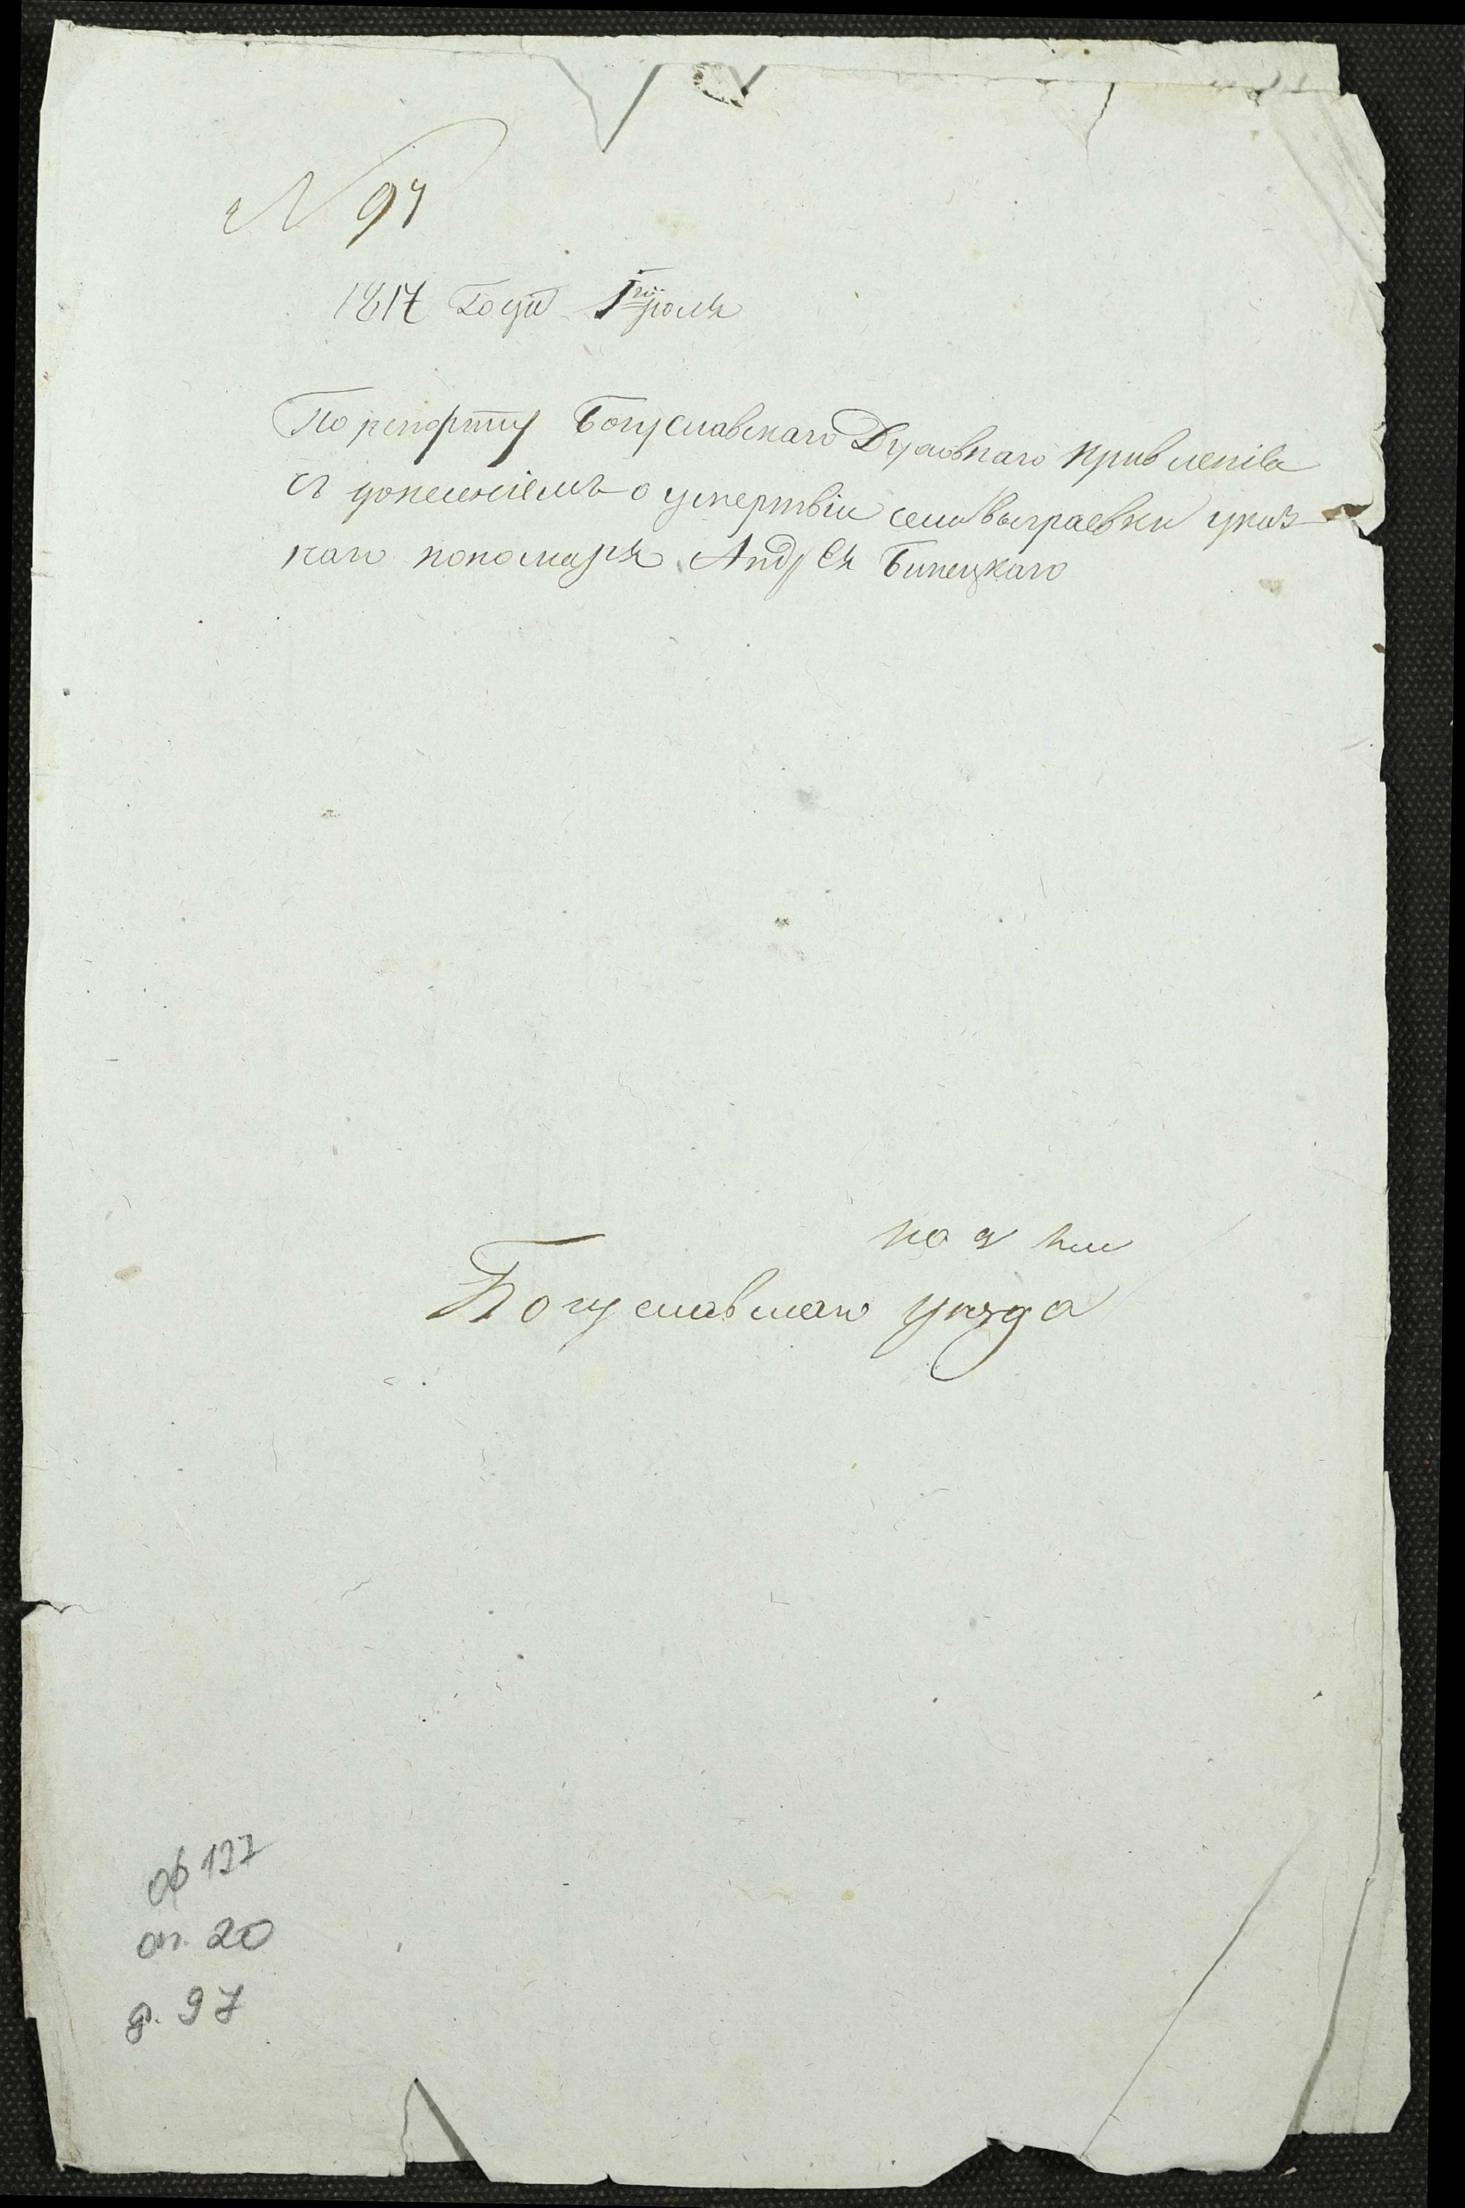 N 97
1817 года Iго июля
По репорту Богуславскаго Духовнаго Правленiя
съ донесенiемъ о умертвiи села Выграевки указ-
наго пономаря Андрея Билецкаго
по
Богуславскаго уезда
оп. 20
д. 97